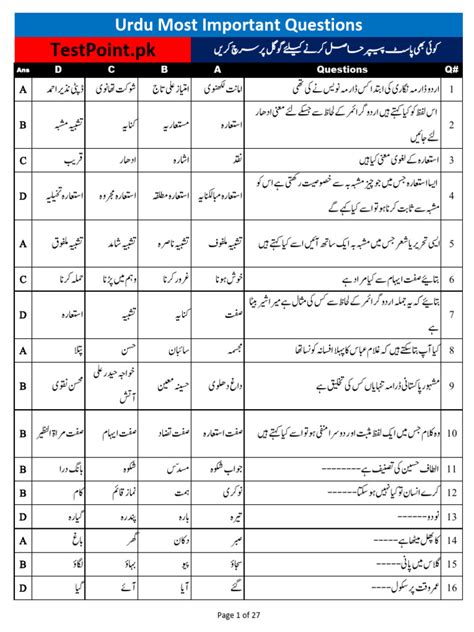 Urdu Most Important Questions
TestPoint.pk کوئی بھی پاسٹ پیپر حاصل کرنے کیلئے گوگل پر سرچ کریں
Ans D C B A Questions Q#
1 اردو ڈارمہ نگاری کی ابتدا کس ڈارمہ نویس نے کی تھی امانت لکھنوی امتیاز علی تاج شوکت تھانوی ڈپٹی نذیر احمد A
2 اس لفظ کو کیا کہتے ہیں اردو گرائمر کے لحاظ سے جسکے لئے معنی ادھار
لئے جائیں استعارہ مستعاریہ کنایہ تشبیہ مشبہ B
3 استعارہ کے لغوی معنی کیا ہیں نقد اشارہ ادھار قریب C
4 ایسا استعارہ جس میں جو چیز مشبہ بہ سے خصوصیت رکھتی ہو اس کو
مشبہ سے ثابت کرنا ہو تو اسے کیا کہیں گے استعارہ مبالکنایہ استعارہ مطلقہ استعارہ مجروہ استعارہ تخیلیہ D
5 ایسی تحریر یا شعر جس میں مشبہ بہ ایک ساتھ آئیں اسے کیا کہتے ہیں تشبیہ ملفوف تشبیہ ناصرہ تشبیہ شامد تشبیہ ملفوق A
6 بتائیے صفت ایہام سے کیا مراد ہے خوش ہونا غرور کرنا وہم میں پڑنا حملہ کرنا C
7 بتائیے کہ یہ جملہ اردو گرائمر کے لحاظ سے کس کی مثال ہے میرا شیر بیٹا
ہے صفت کنایہ تشبیہ استعارہ D
8 کیا آپ بتا سکتے ہیں کہ غلام عباس کا پہلا افسانہ کونسا تھا مجسمہ سائبان حسن پتلا A
9 مشہور پاکستانی ڈرامہ تنہایاں کس کی تخلیق ہے داغ دھلوی حسینہ معین خواجہ حیدر علی
آتش محسن نقوی B
10 وہ کلام جس میں ایک لفظ مثبت اور دوسرا منفی ہو تو اسے کیا کہتے ہیں صفت استعارہ صفت تضاد صفت ایہام صفت مراۃ النظیر B
11 الطاف حسین کی تصنیف ہے---------- جواب شکوہ مسدس شکوہ بانگ درا B
12 کرے انسان تو کیا نہیں ہو سکتا------ نوکری ہمت نماز قائم کام B
13 نو دو------- تیرہ بارہ پندرہ گیارہ D
14 کا پھل میٹھا ہے------ صبر صاف شکر باغ A
15 گلاس میں پانی------ سجاؤ پیو بہاؤ لگاؤ B
16 عمر وقت پر سکول------ گیا آئے گیا آیا D
Page 1 of 27